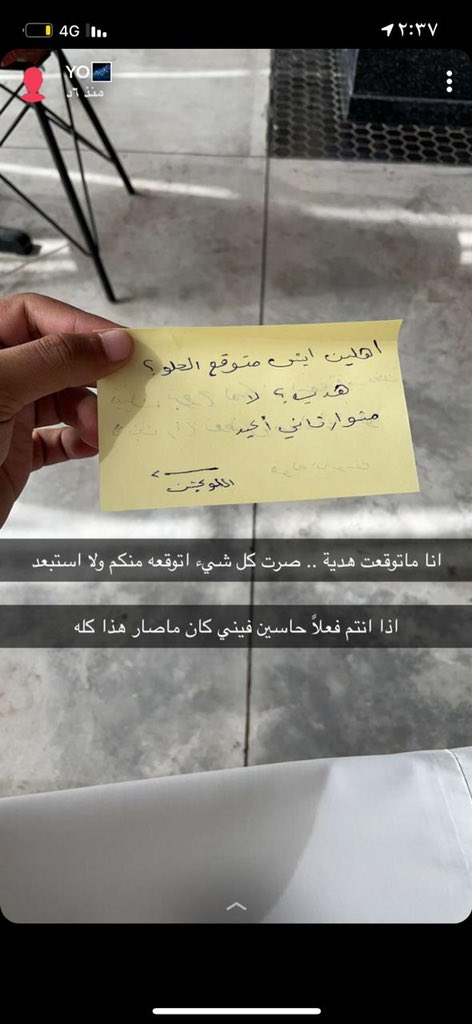 4G
٢:٣٧
YO
منذ ٦د
اهلين ايش متوقع الحلو؟
هدية؟ لا
مشوار ثاني أكيد
اللوكيشن
انا ماتوقعت هدية .. صرت كل شيء اتوقعه منكم ولا استبعد
اذا انتم فعلاً حاسين فيني كان ماصار هذا كله